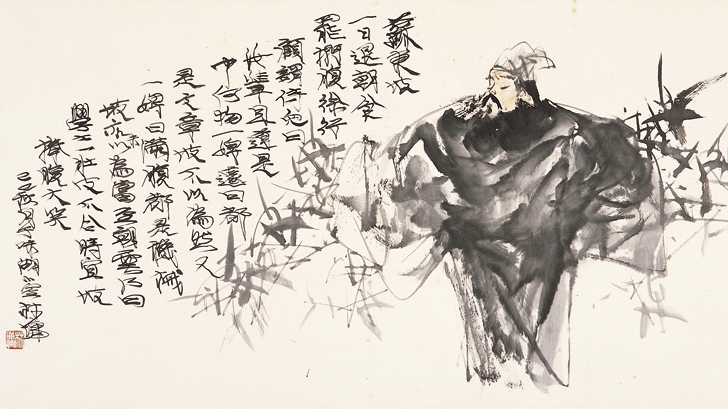 蘇東坡
一日退朝食
罷捫腹徐行
顧謂侍兒曰
汝輩且道是
中何物一婢遽曰都
是文章坡不以為然又
一婢曰滿腹都是機械
坡亦未以為當至朝雲乃曰
學士一肚皮不合時宜坡
捧腹大笑